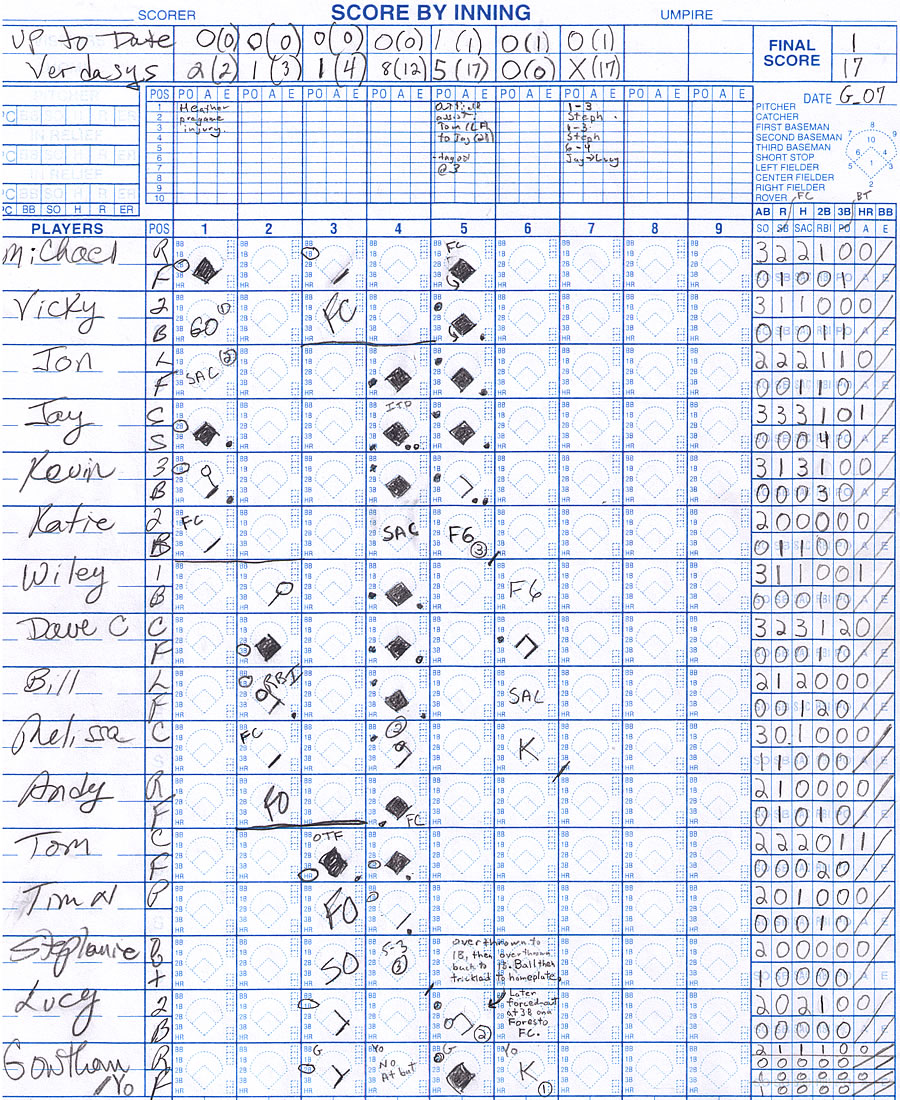 SCORER SCORE BY INNING UMPIRE
UP to Date 0(0) 0(0) 0(0) 0(0) 1(1) 0(1) 0(1)
Verdasys 2(2) 1(3) 1(4) 8(12) 5(17) 0(0) X(17)
FINAL SCORE 1
17
POS PO A E PO A E PO A E PO A E PO A E PO A E PO A E PO A E PO A E
DATE G_07
1
2
3
4
5
6
7
8
9
10
Heather
pregame
injury.
assist:
Tom (LF)
to Jay (2B)
@ 3
1-3
Steph.
1-3
Steph
6-4
Jay→Lucy
PITCHER
CATCHER
FIRST BASEMAN
SECOND BASEMAN
THIRD BASEMAN
SHORT STOP
LEFT FIELDER
CENTER FIELDER
RIGHT FIELDER
ROVER
IN RELIEF
PC BB SO H R ER
FC BT
AB R H 2B 3B HR BB
PLAYERS POS 1 2 3 4 5 6 7 8 9 SO SB SAC RBI PO A E
Michael RF FC 3 2 2 1 0 0 /
0 1 0 0 1
Vicky 2B GO 1 FC 3 1 1 0 0 0 /
0 1 0 1 1
Jon LF SAC 2 2 2 2 1 1 0 /
0 0 1 1 0
Jay SS ITP 3 3 3 1 0 1 /
0 0 0 4 0
Kevin 3B 3 1 3 1 0 0 /
0 0 0 3 0
Katie 2B FC SAC F6 3 2 0 0 0 0 0 /
0 1 1 0 0
Wiley 1B F6 3 1 1 0 0 1 /
0 0 0 1 0
Dave C CF 3 2 3 1 2 0 /
0 0 0 1 0
Bill LF RBI SAC 2 1 2 0 0 0 /
0 0 1 2 0
Melissa C FC 2 K 3 0 1 0 0 0 /
1 1 0 0 0
Andy RF FO FC 2 1 0 0 0 0 /
0 1 0 1 0
Tom CF OTF 2 2 2 0 1 1 /
0 0 0 2 0
Tim N P FO 2 0 1 0 0 0 /
0 0 0 1 0
Stephanie SO 5-3 3 2 0 0 0 0 0 /
1 0 0 0 0
Overthrown to
1B, then overthrown
back to 1B. Ball then
trickled to homeplate.
Lucy 2B 2 2 0 2 1 0 0 /
0 0 0 0 0
Later
forced-out
at 3B on a
Foresto
FC.
Gowtham RF G Yo G Yo 2 1 1 1 0 0
/Yo No At bat K 1